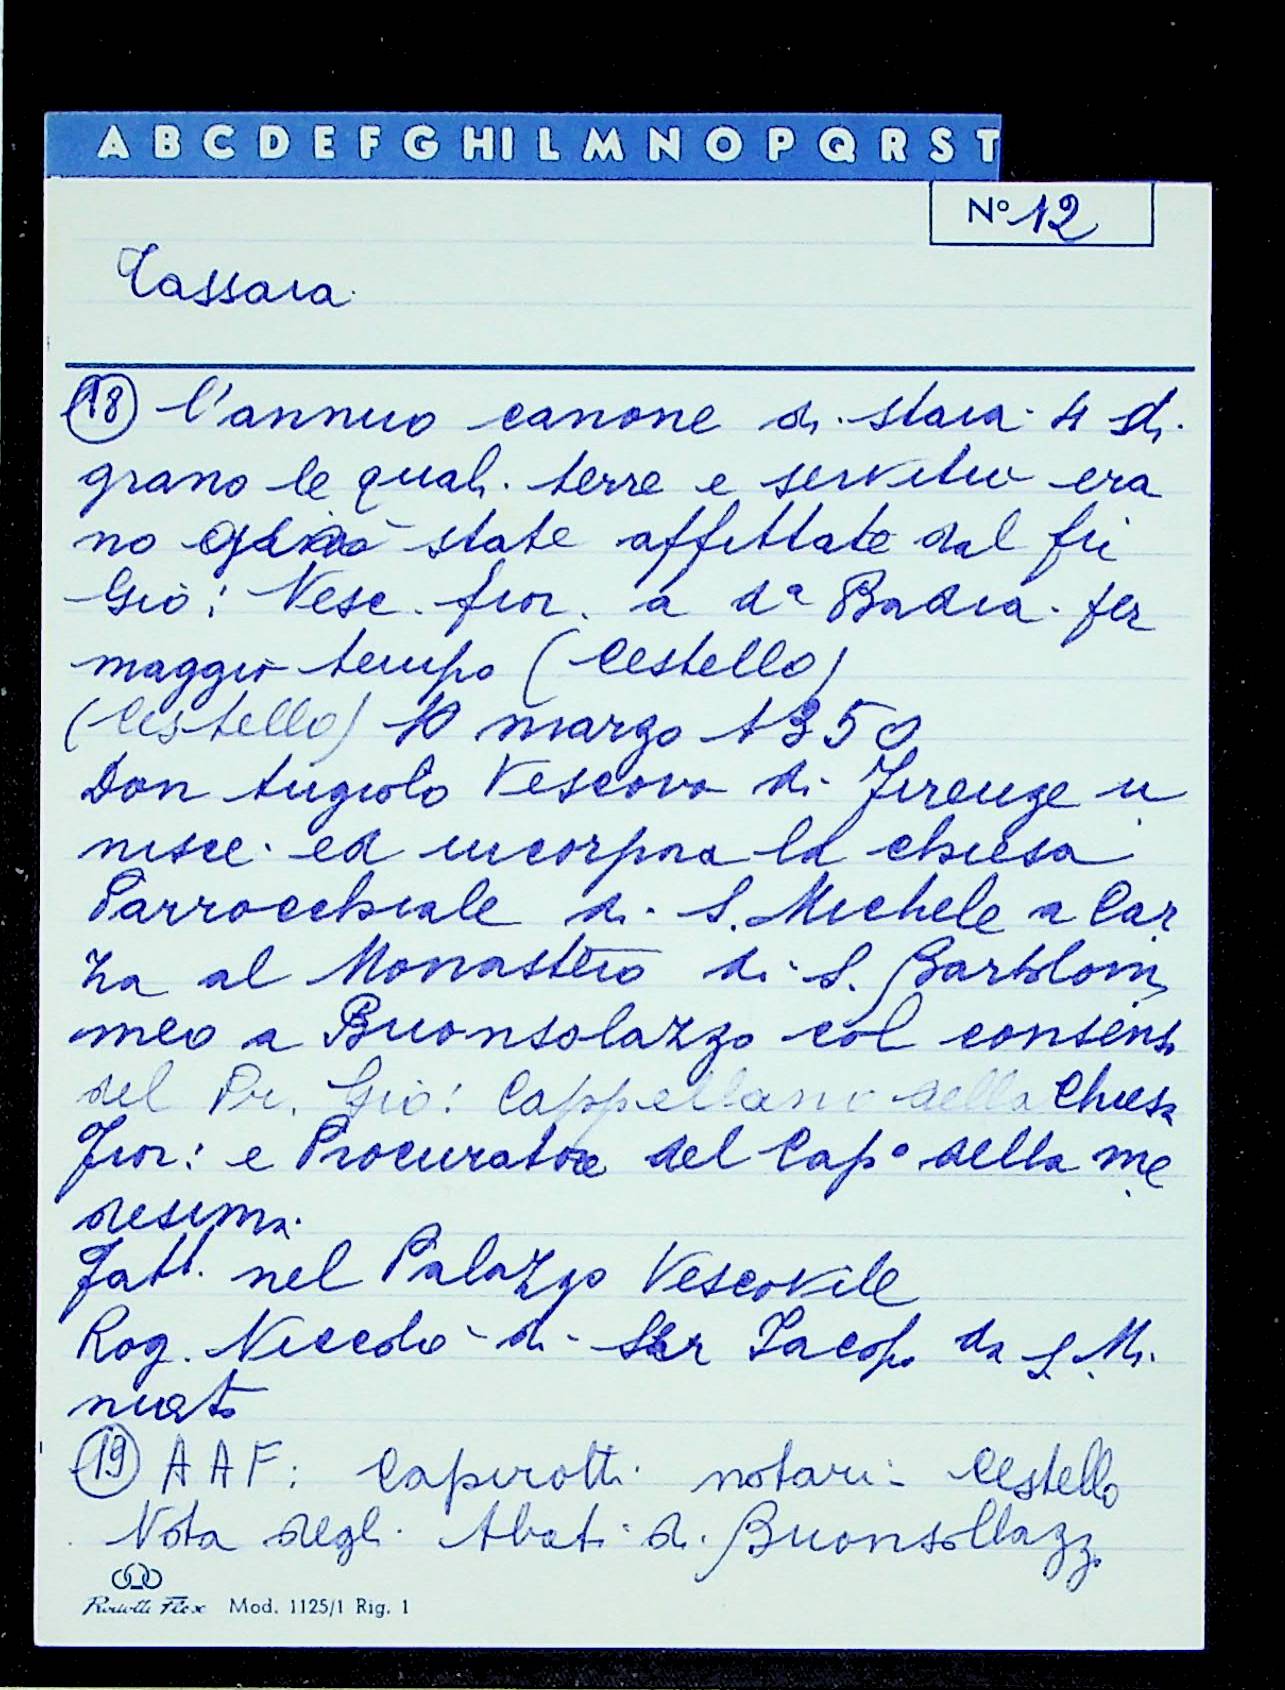 A B C D E F G H I L M N O P Q R S T
N° 12
Tassaia
18 l'annuo canone di staia 4 di
grano le quali terre e servitù era
no già state affittate dal fu
Giò: Vesc. fior. a dª Badia per
maggior tempo (Cestello)
(Cistello) 10 marzo 1350
Don Angiolo Vescovo di Firenze u
nisce ed incorpora la chiesa
Parrocchiale di S. Michele a Car
za al Monastero di S. Bartolom
meo a Buonsolazzo col consenso
del Pr. Giò: Cappellano della Chiesa
Fior: e Procuratore del Cap° della me
desima.
Fatt. nel Palazzo Vescovile
Rog. Niccolò di Ser Iacopo da S. Mi
niato
19 AAF: Capirotti notari Cestello
Nota degli Abati di Buonsollazzo
Mod. 1125/1 Rig. 1